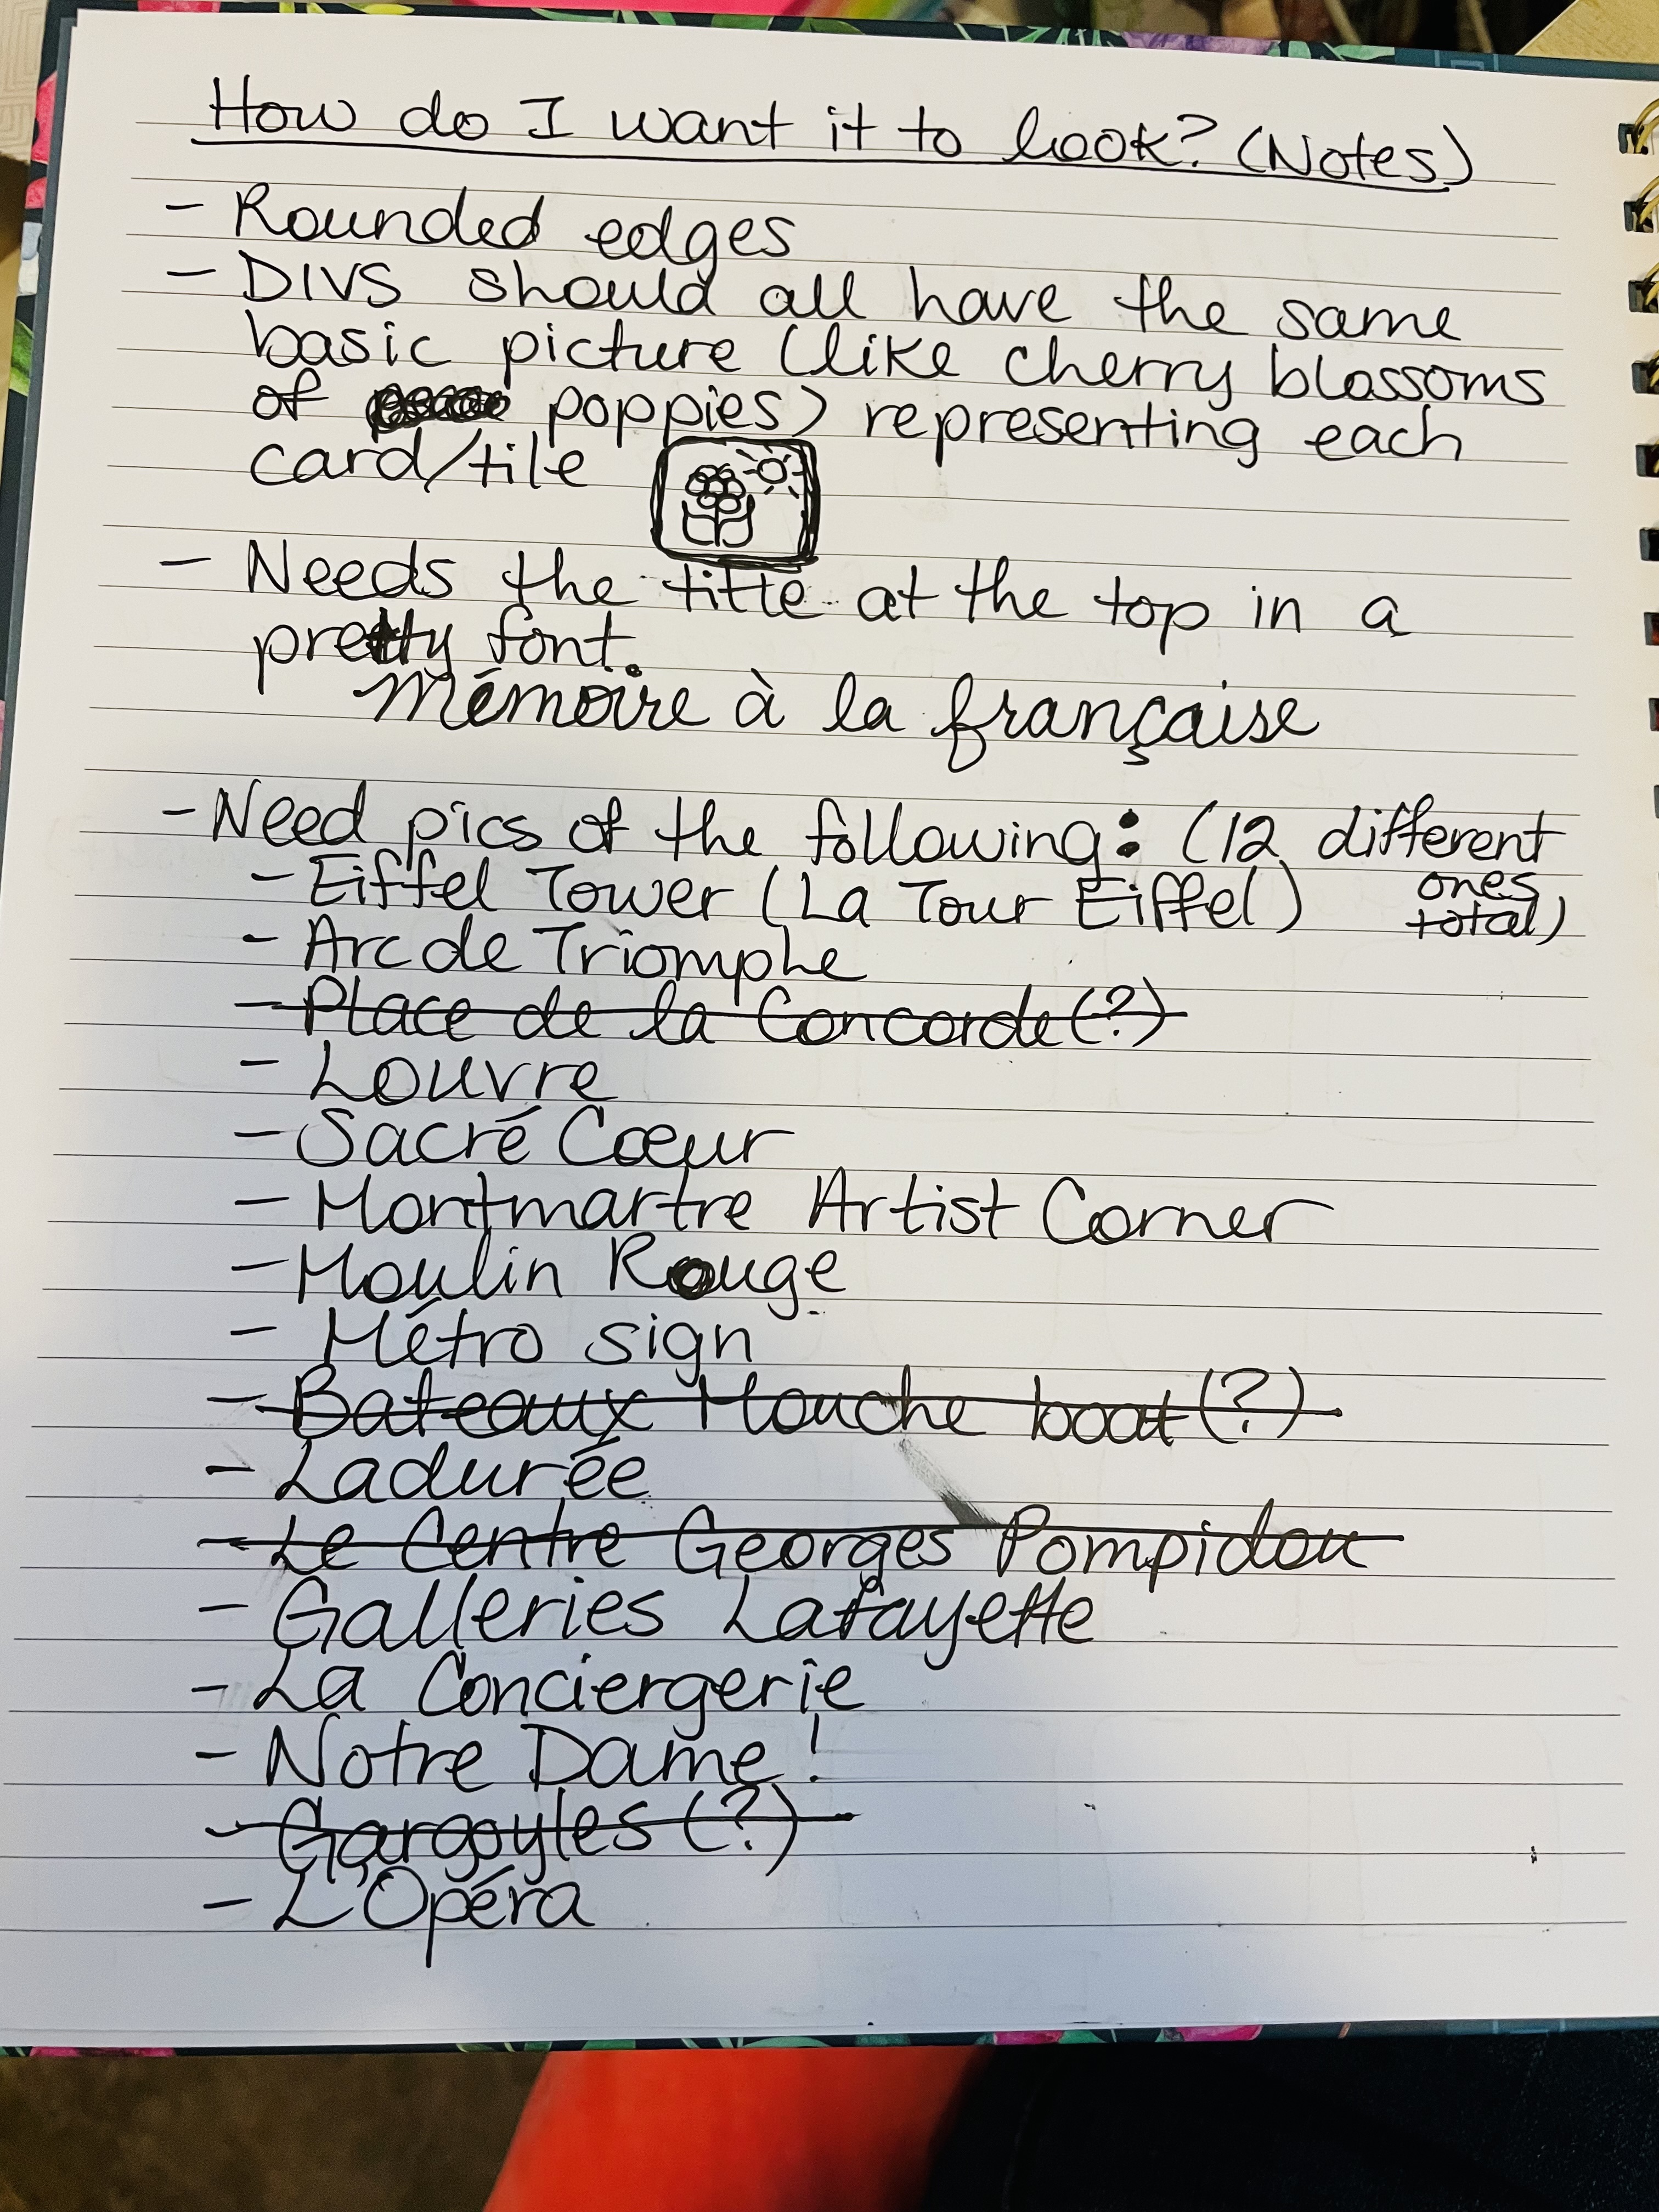 How do I want it to look? (Notes)
- Rounded edges
- DIVS should all have the same
basic picture (like cherry blossoms
of poppies) representing each
card/tile
- Needs the title at the top in a
pretty font.
Mémoire à la française
- Need pics of the following: (12 different
ones
total)
- Eiffel Tower (La Tour Eiffel)
- Arc de Triomphe
- Place de la Concorde (?)
- Louvre
- Sacré Cœur
- Montmartre Artist Corner
- Moulin Rouge
- Métro sign
- Bateaux Mouche boat (?)
- Ladurée
- Le Centre Georges Pompidou
- Galleries Lafayette
- La Conciergerie
- Notre Dame!
- Gargoyles (?)
- L'Opéra